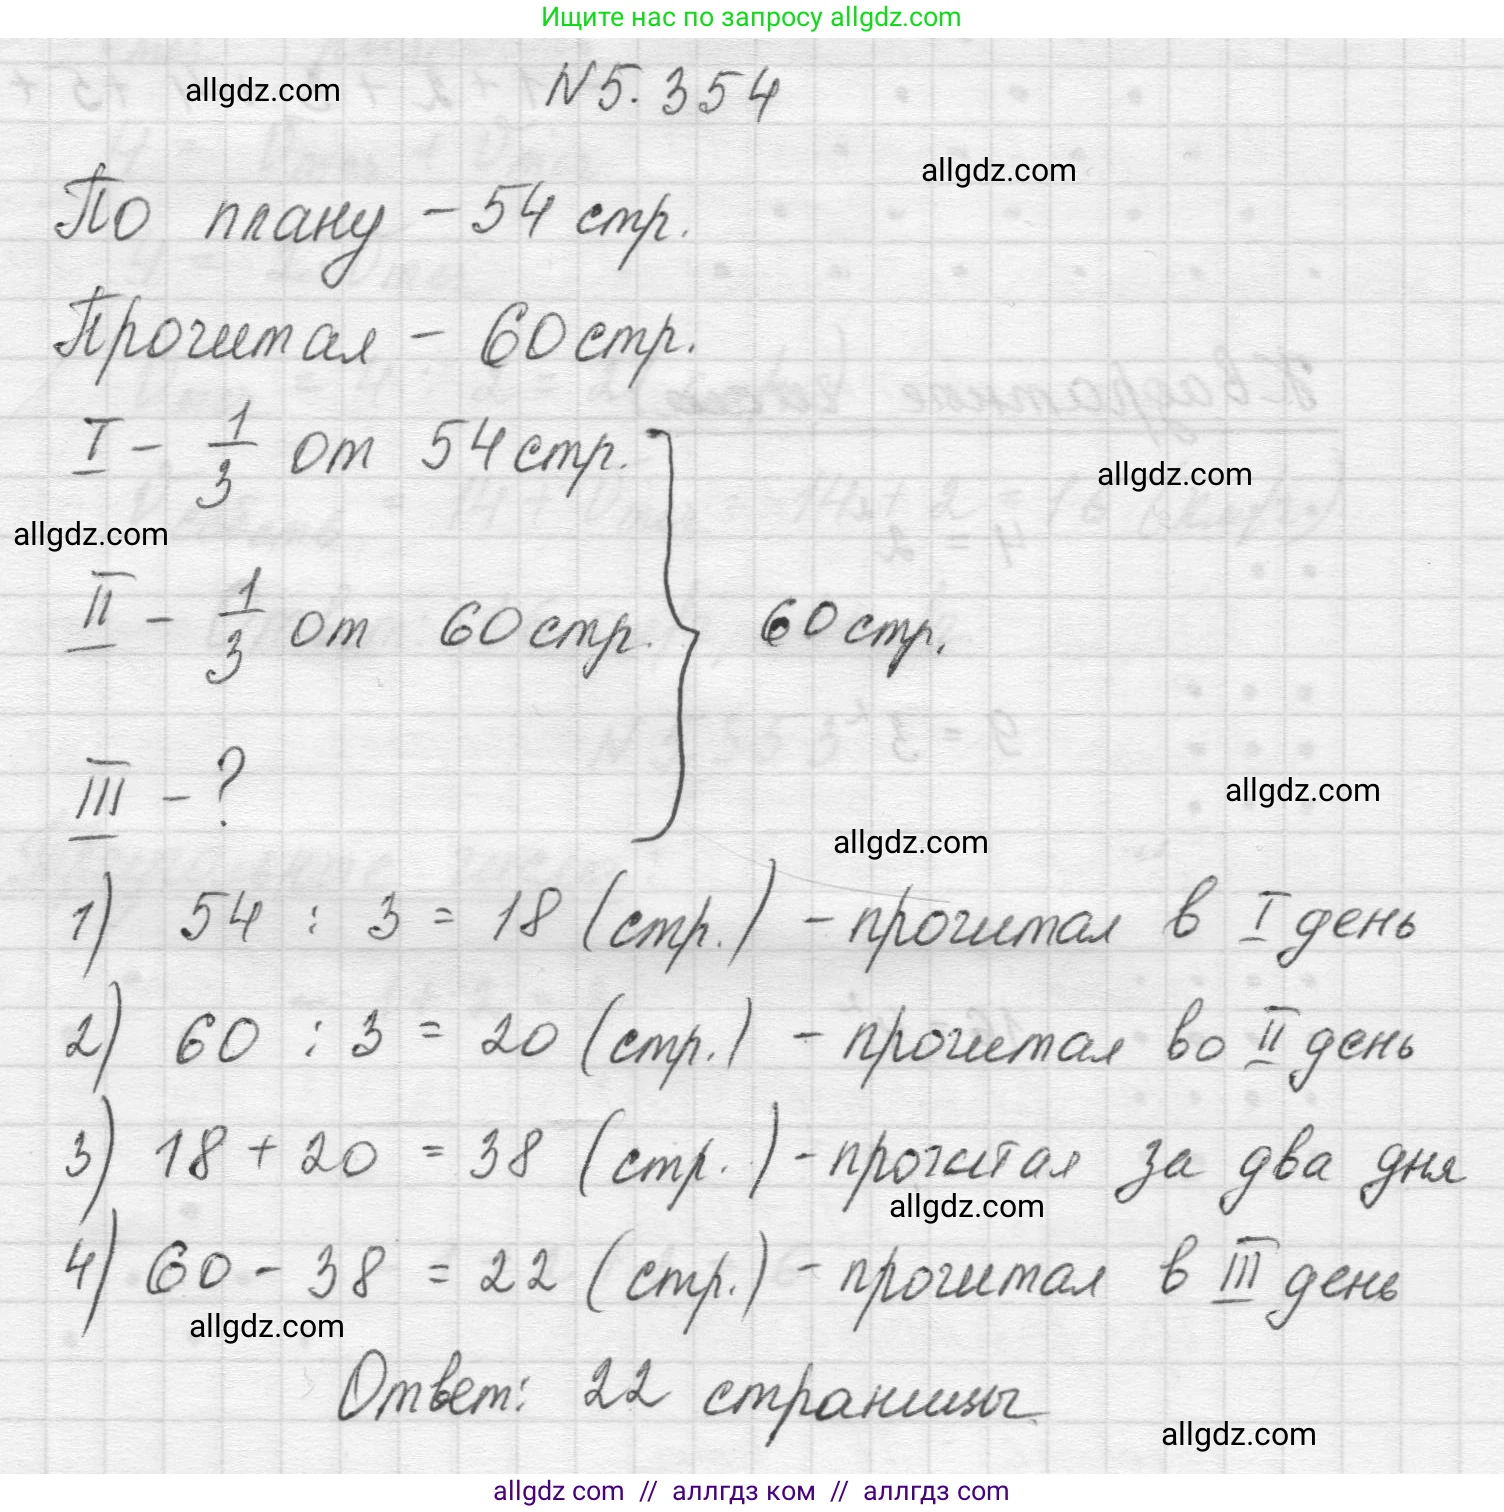 Ищите нас по запросу allgdz.com
allgdz.com
N 5.354
allgdz.com
По плану – 54 стр.
Прочитал – 60 стр.
I – 1/3 от 54 стр.
allgdz.com
allgdz.com
II – 1/3 от 60 стр.
60 стр.
III – ?
allgdz.com
allgdz.com
1) 54 : 3 = 18 (стр.) – прочитал в I день
2) 60 : 3 = 20 (стр.) – прочитал во II день
3) 18 + 20 = 38 (стр.) – прочитал за два дня
allgdz.com
4) 60 – 38 = 22 (стр.) – прочитал в III день
allgdz.com
Ответ: 22 страницы
allgdz.com
allgdz com // аллгдз ком // аллгдз com